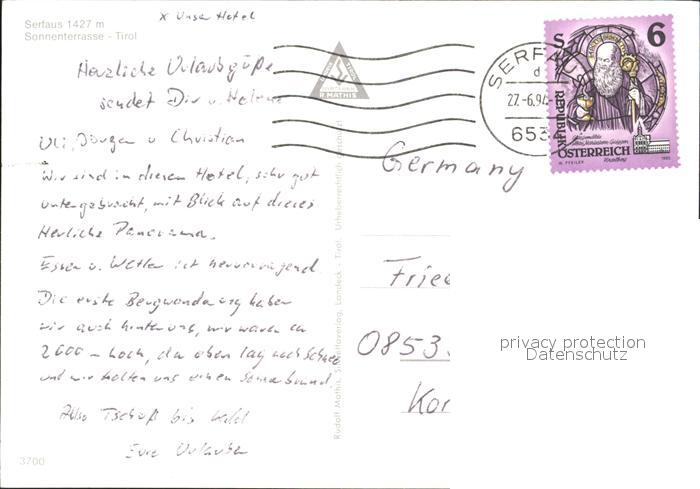 Serfaus 1427 m
Sonnenterrasse - Tirol
x Unser Hotel
Herzliche Urlaubsgrüße
sendet Dir u. Helene
Uli, Jürgen u Christian
Wir sind in diesem Hotel, sehr gut
untergebracht, mit Blick auf dieses
Herrliche Panorama.
Essen u. Wetter ist hervorragend.
Die erste Bergwanderung haben
wir auch hinter uns, wir waren ca
2000 m hoch, da oben lag noch Schnee
und wir holten uns einen Sonnenbrand.
Also Tschüß bis bald
Eure Urlauber
3700
R. MATHIS
Rudolf Mathis, Landeck - Tirol. Urheberrechtlich geschützt
SERF
d
27.-6.94-
653
S 6
REPUBLIK
ÖSTERREICH
Germany
Fried
0853
Kor
privacy protection
Datenschutz